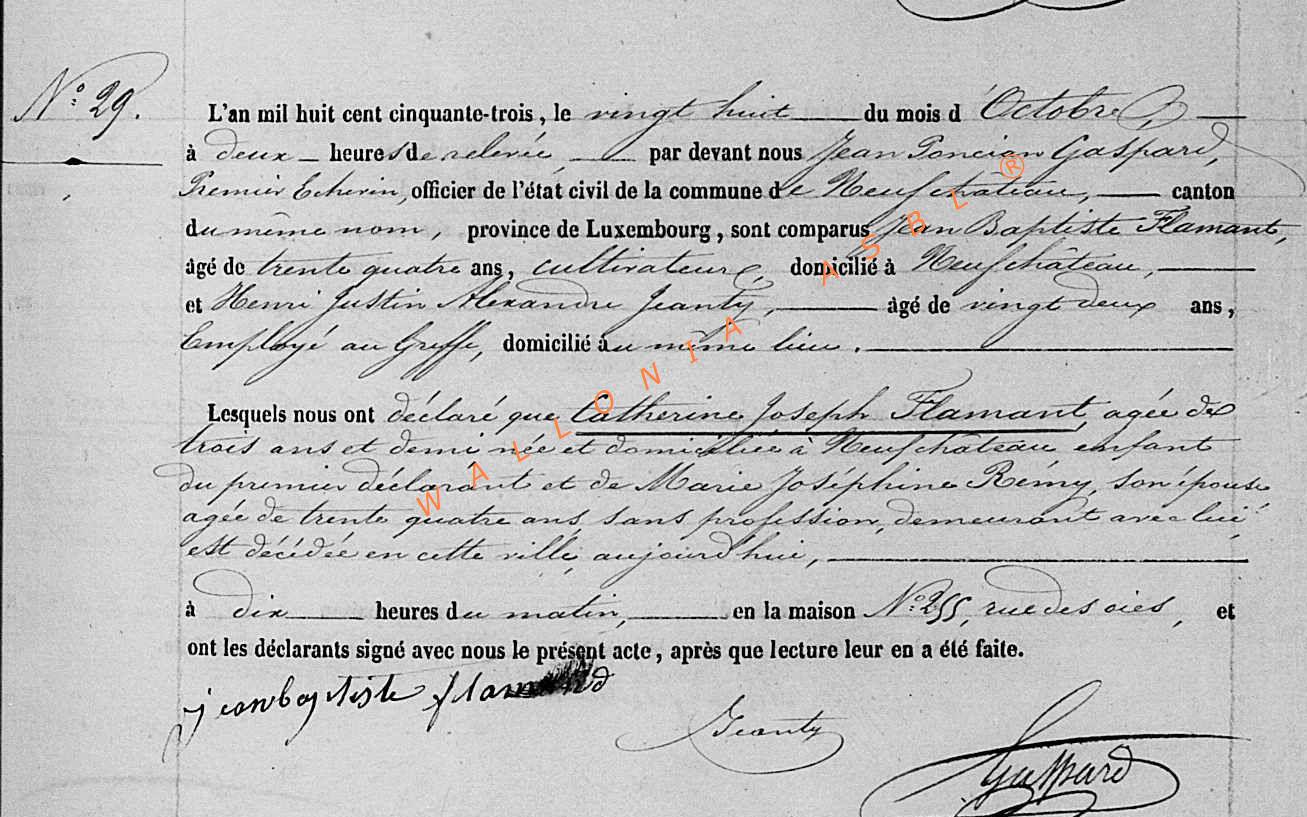 N° 29.
L'an mil huit cent cinquante-trois, le vingt huit du mois d'Octobre,
à deux heures de relevée par devant nous Jean Poncian Gaspard,
Premier Echevin, officier de l'état civil de la commune de Neufchâteau, canton
du même nom, province de Luxembourg, sont comparus Jean Baptiste Flamant,
âgé de trente quatre ans, cultivateur, domicilié à Neufchâteau,
et Henri Justin Alexandre Jeanty, âgé de vingt deux ans,
Employé au Greffe, domicilié au même lieu.
Lesquels nous ont déclaré que Catherine Joseph Flamant, agée de
trois ans et demi née et domiciliée à Neufchâteau, enfant
du premier déclarant et de Marie Joséphine Rémy, son épouse
agée de trente quatre ans, sans profession, demeurant avec lui,
est décédée en cette ville, aujourd'hui,
à dix heures du matin, en la maison N° 255, rue des oies, et
ont les déclarants signé avec nous le présent acte, après que lecture leur en a été faite.
jean baptiste flamand
Jeanty
Gaspard
WALLONIA ASBL ®